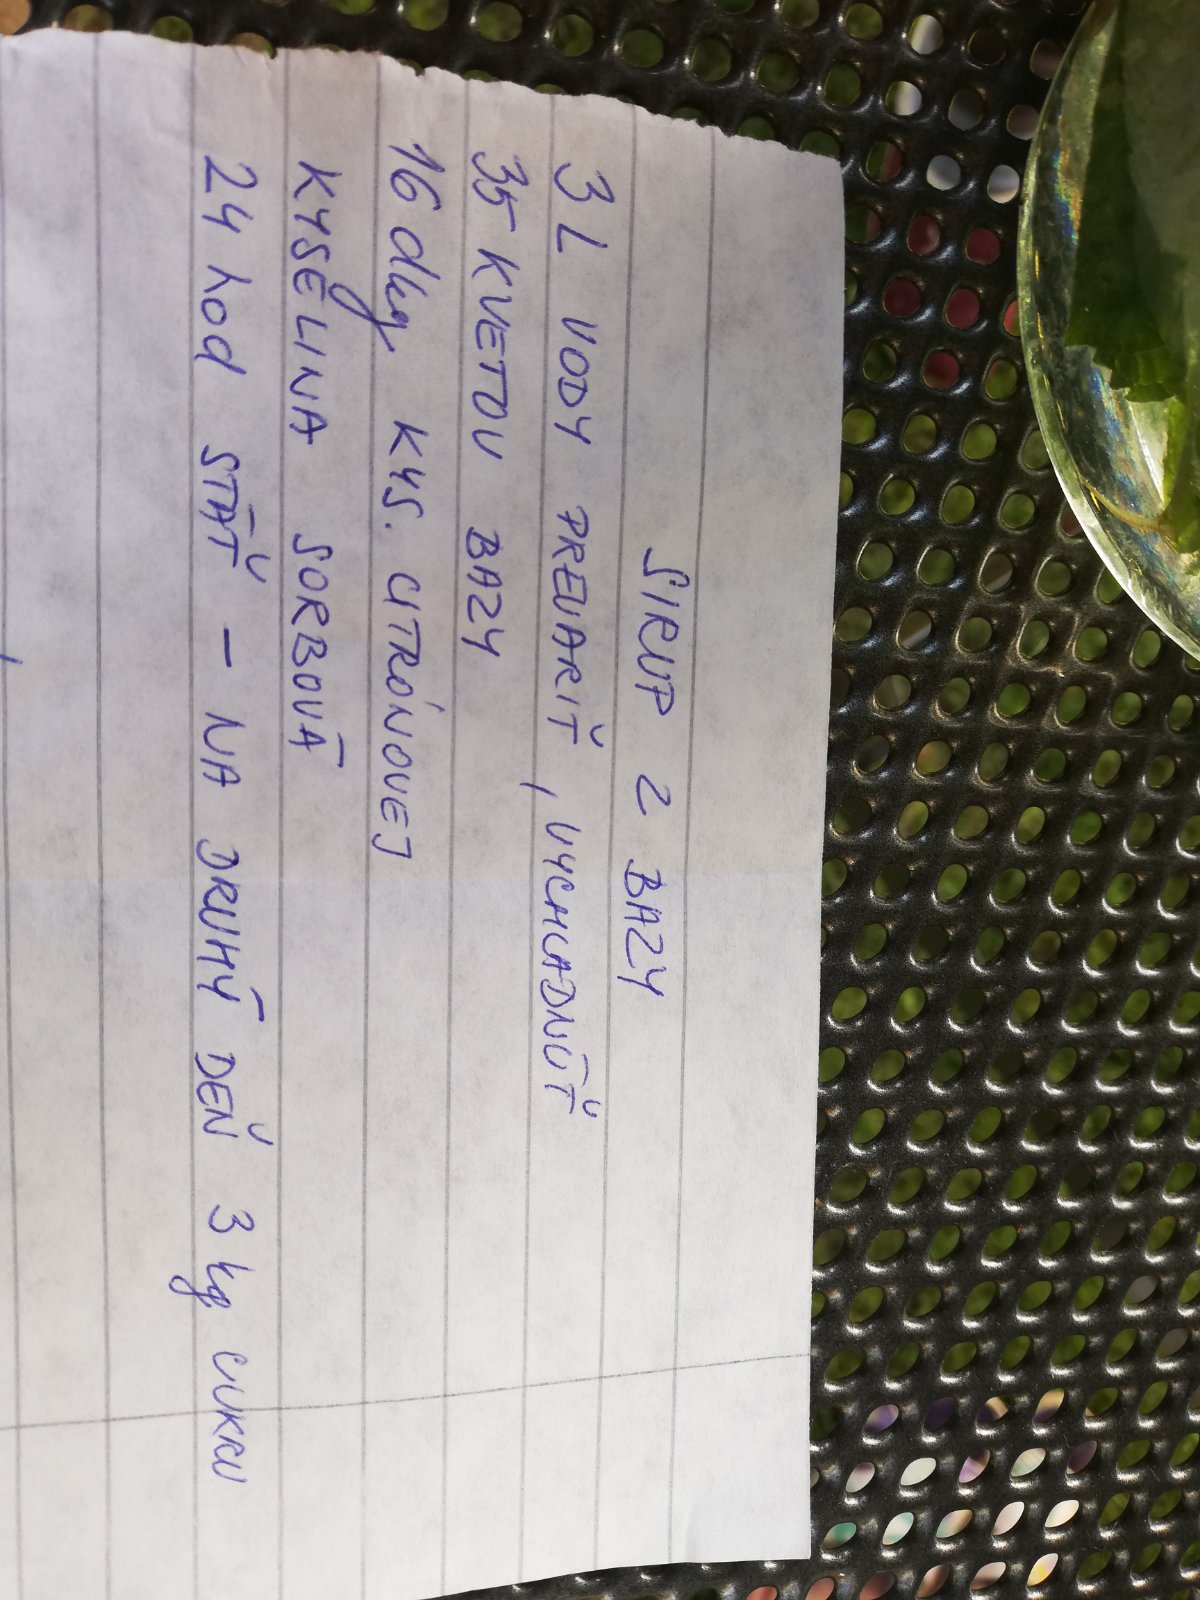 SIRUP Z BAZY
3 L VODY PREVARIŤ, VYCHLADNÚŤ
35 KVETOV BAZY
16 dkg KYS. CITRÓNOVEJ
KYSELINA SORBOVÁ
24 hod STÁŤ - NA DRUHÝ DEŇ 3 kg CUKRU